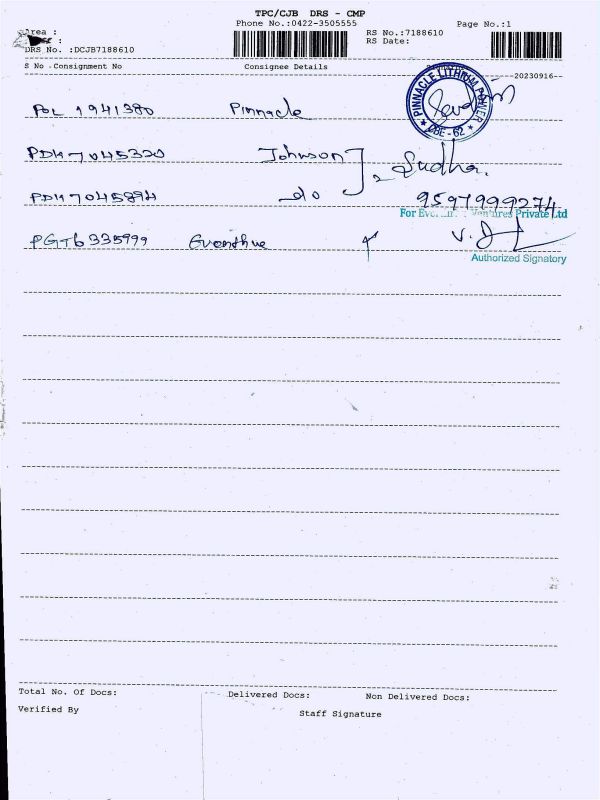 TPC/CJB DRS - CMP
Phone No.:0422-3505555
Page No.:1
Area :
RS No.:7188610
RS Date:
DRS No. :DCJB7188610
S No Consignment No Consignee Details
20230916
POL 1941380 Pinnacle
PINNACLE LITHIUM POWER
CBE - 62
PDK 7045320 Johnson
2 Sudha.
PDK 7045894 do
9597999274
For Ventures Private Ltd
PGT6335999
Authorized Signatory
Total No. Of Docs: Delivered Docs: Non Delivered Docs:
Verified By Staff Signature